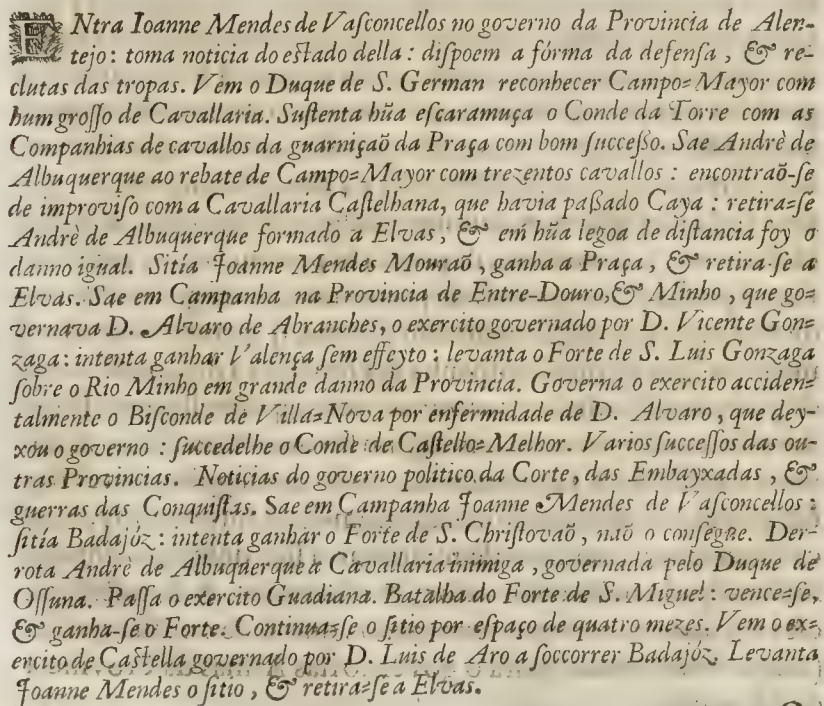 ENtra Ioanne Mendes de Vaſconcellos no governo da Provincia de Alen-
tejo: toma noticia do eſtado della: diſpoem a fórma da defenſa, & re-
clutas das tropas. Vem o Duque de S. German reconhecer Campo-Mayor com
hum groſſo de Cavallaria. Suſtenta hũa eſcaramuça o Conde da Torre com as
Companhias de cavallos da guarniçaõ da Praça com bom ſucceſſo. Sae Andrè de
Albuquerque ao rebate de Campo-Mayor com trezentos cavallos: encontraõ-ſe
de improviſo com a Cavallaria Caſtelhana, que havia paſſado Caya: retira-ſe
Andrè de Albuquerque formado a Elvas, & em hũa legoa de diſtancia foy o
danno igual. Sitía Joanne Mendes Mouraõ, ganha a Praça, & retira-ſe a
Elvas. Sae em Campanha na Provincia de Entre-Douro, & Minho, que go-
vernava D. Alvaro de Abranches, o exercito governado por D. Vicente Gon-
zaga: intenta ganhar Valença ſem effeyto: levanta o Forte de S. Luis Gonzaga
ſobre o Rio Minho em grande danno da Provincia. Governa o exercito acciden-
talmente o Biſconde de Villa-Nova por enfermidade de D. Alvaro, que dey-
xou o governo: ſuccedelhe o Conde de Caſtello-Melhor. Varios ſucceſſos das ou-
tras Provincias. Noticias do governo politico da Corte, das Embayxadas, &
guerras das Conquiſtas. Sae em Campanha Joanne Mendes de Vaſconcellos:
ſitía Badajóz: intenta ganhar o Forte de S. Chriſtovaõ, naõ o conſegue. Der-
rota Andrè de Albuquerque a Cavallaria inimiga, governada pelo Duque de
Oſſuna. Paſſa o exercito Guadiana. Batalha do Forte de S. Miguel: vence-ſe,
& ganha-ſe o Forte. Continua-ſe o ſitio por eſpaço de quatro mezes. Vem o ex-
ercito de Caſtella governado por D. Luis de Aro a ſoccorrer Badajóz. Levanta
Joanne Mendes o ſitio, & retira-ſe a Elvas.